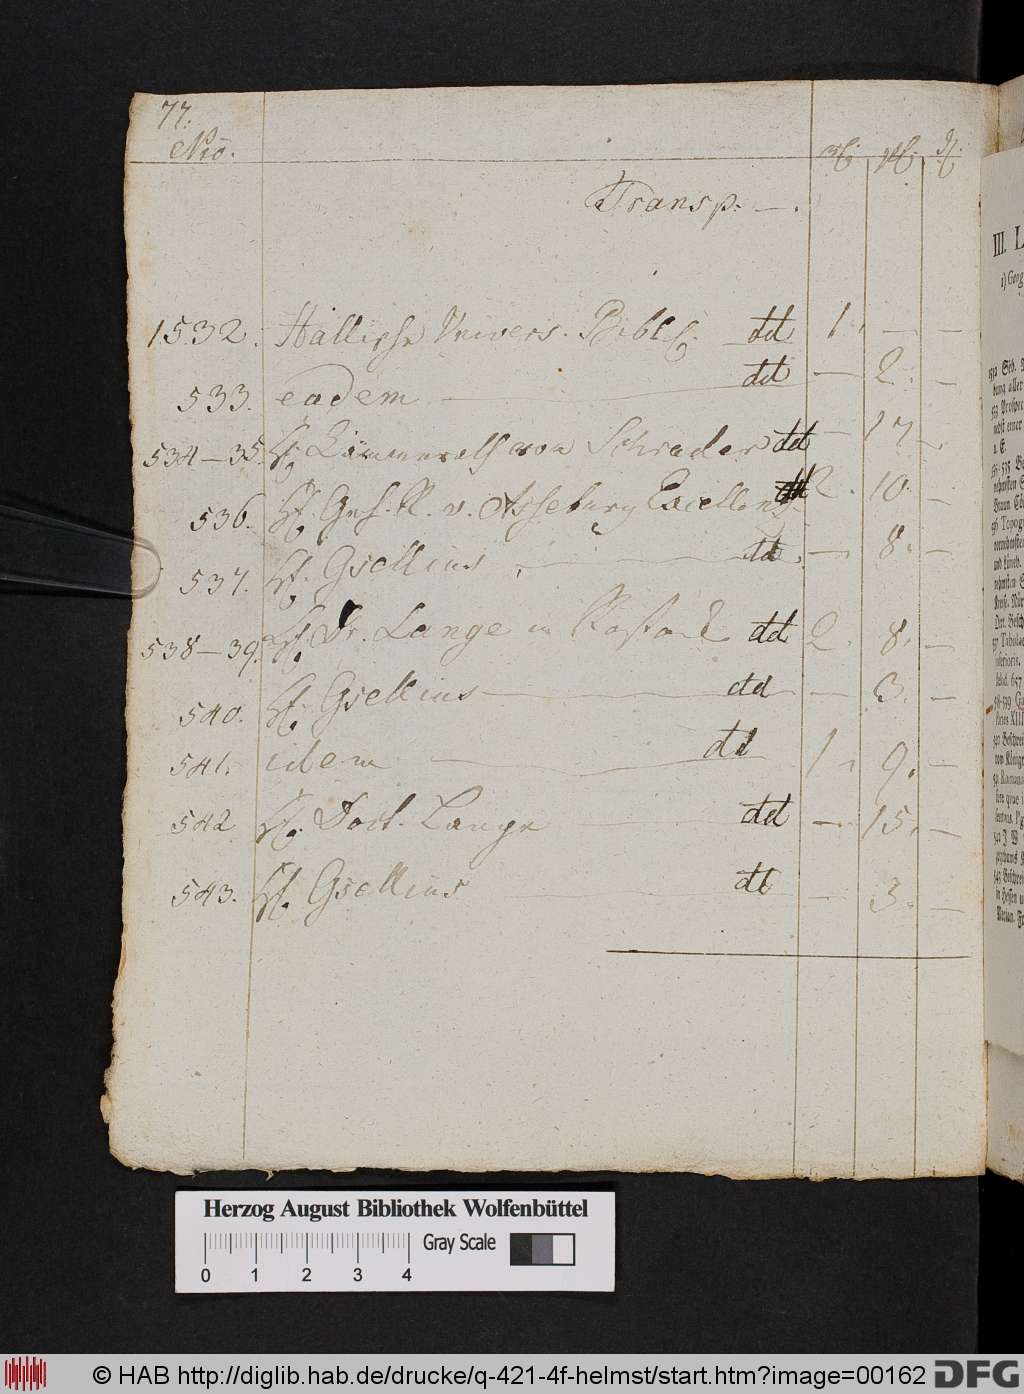 77.
Nro.
Transp. —.
1532. Hällische Univers. Bibl. dd 1. — —
533. eadem — dd — 2. —
534—35. H. Cammerath von Schrader dd — 17. —
536. H. Geh. R. v. Asseburg Excellenz dd 2. 10. —
537. H. Gsellius — dd. — 8. —
538—39. H. Dr. Lange in dd 2. 8. —
540. H. Gsellius — dd — 3. —
541. idem — dd 1 9. —
542 H. Doct. Lange — dd — 15. —
543. H. Gsellius — dd — 3. —
III. L
1) Geog
Herzog August Bibliothek Wolfenbüttel
Gray Scale
0 1 2 3 4
© HAB http://diglib.hab.de/drucke/q-421-4f-helmst/start.htm?image=00162
DFG